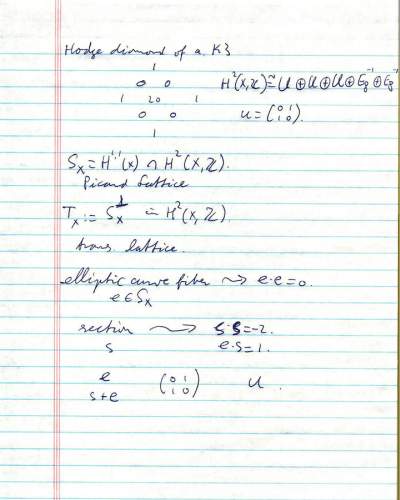 Hodge diamond of a K3
1
0 0
H²(X,ℤ) ≅ U ⊕ U ⊕ U ⊕ E₈⁻¹ ⊕ E₈⁻¹
1 20 1
0 0
U = (0 1
1 0).
1
S_X = H^{1,1}(X) ∩ H²(X,ℤ).
Picard lattice
T_X := S_X^⊥ in H²(X,ℤ).
trans. lattice.
elliptic curve fiber ⇝ e·e=0.
e ∈ S_X
section ⇝ s·s=-2.
s e·s=1.
e (0 1 U.
s+e 1 0)